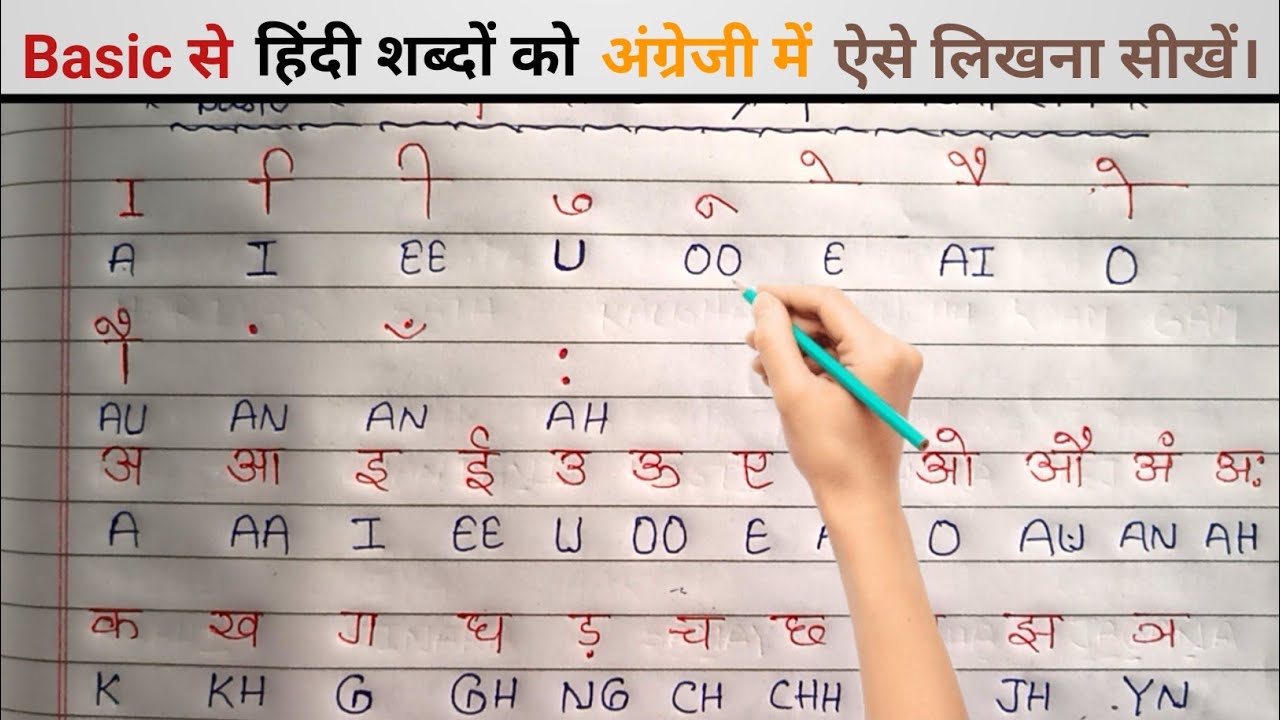 Basic से हिंदी शब्दों को अंग्रेजी में ऐसे लिखना सीखें।
ा ि ी ु ू े ै ो
A I EE U OO E AI O
ौ ं ँ ः
AU AN AN AH
अ आ इ ई उ ऊ ए ओ औ अं अः
A AA I EE U OO E O AU AN AH
क ख ग घ ड़ च छ झ ञ
K KH G GH NG CH CHH JH YN